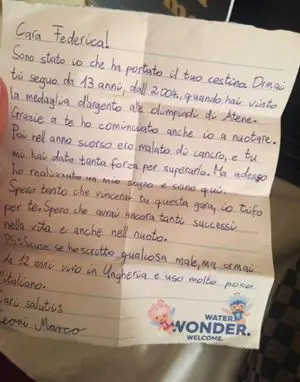 Cara Federica!
Sono stato io che ha portato il tuo cestino. Ormai
ti seguo da 13 anni, dall 2004, quando hai vinto
la medaglia d'argento alle olimpiadi di Atene.
Grazie a te ho cominciato anche io a nuotare.
Poi nell anno scorso ero malato di cancro, e tu
mi hai dato tanta forza per superarlo. Ma adesso
ho realizzato un mio sogno e sono qui.
Spero tanto che vincerai tu questa gara, io tifo
per te. Spero che avrai ancora tanti successi
nella vita e anche nell nuoto.
PS: Scuse se ho scritto qualcosa male, ma ormai
da 12 anni vivo in Ungheria e uso molto poco
l'italiano.
Cari saluti:
Leoni Marco
WATER
WONDER.
WELCOME.